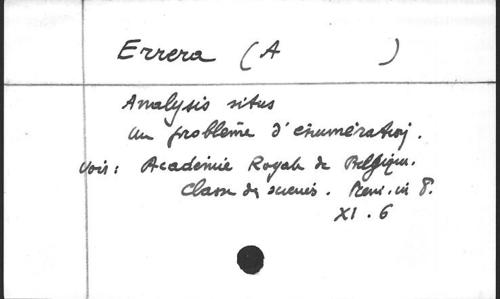 Errera (A )
Analysis situs
Un problème d'énumération.
Voir : Académie Royale de Belgique.
Classe des sciences. Mem. in 8°.
XI. 6